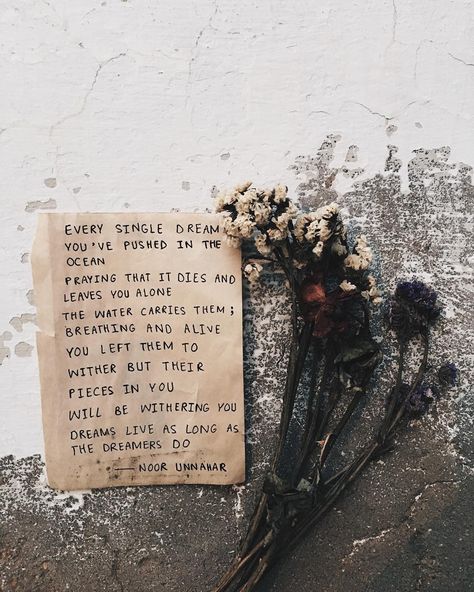 EVERY SINGLE DREAM
YOU'VE PUSHED IN THE
OCEAN
PRAYING THAT IT DIES AND
LEAVES YOU ALONE
THE WATER CARRIES THEM;
BREATHING AND ALIVE
YOU LEFT THEM TO
WITHER BUT THEIR
PIECES IN YOU
WILL BE WITHERING YOU
DREAMS LIVE AS LONG AS
THE DREAMERS DO
—NOOR UNNAHAR